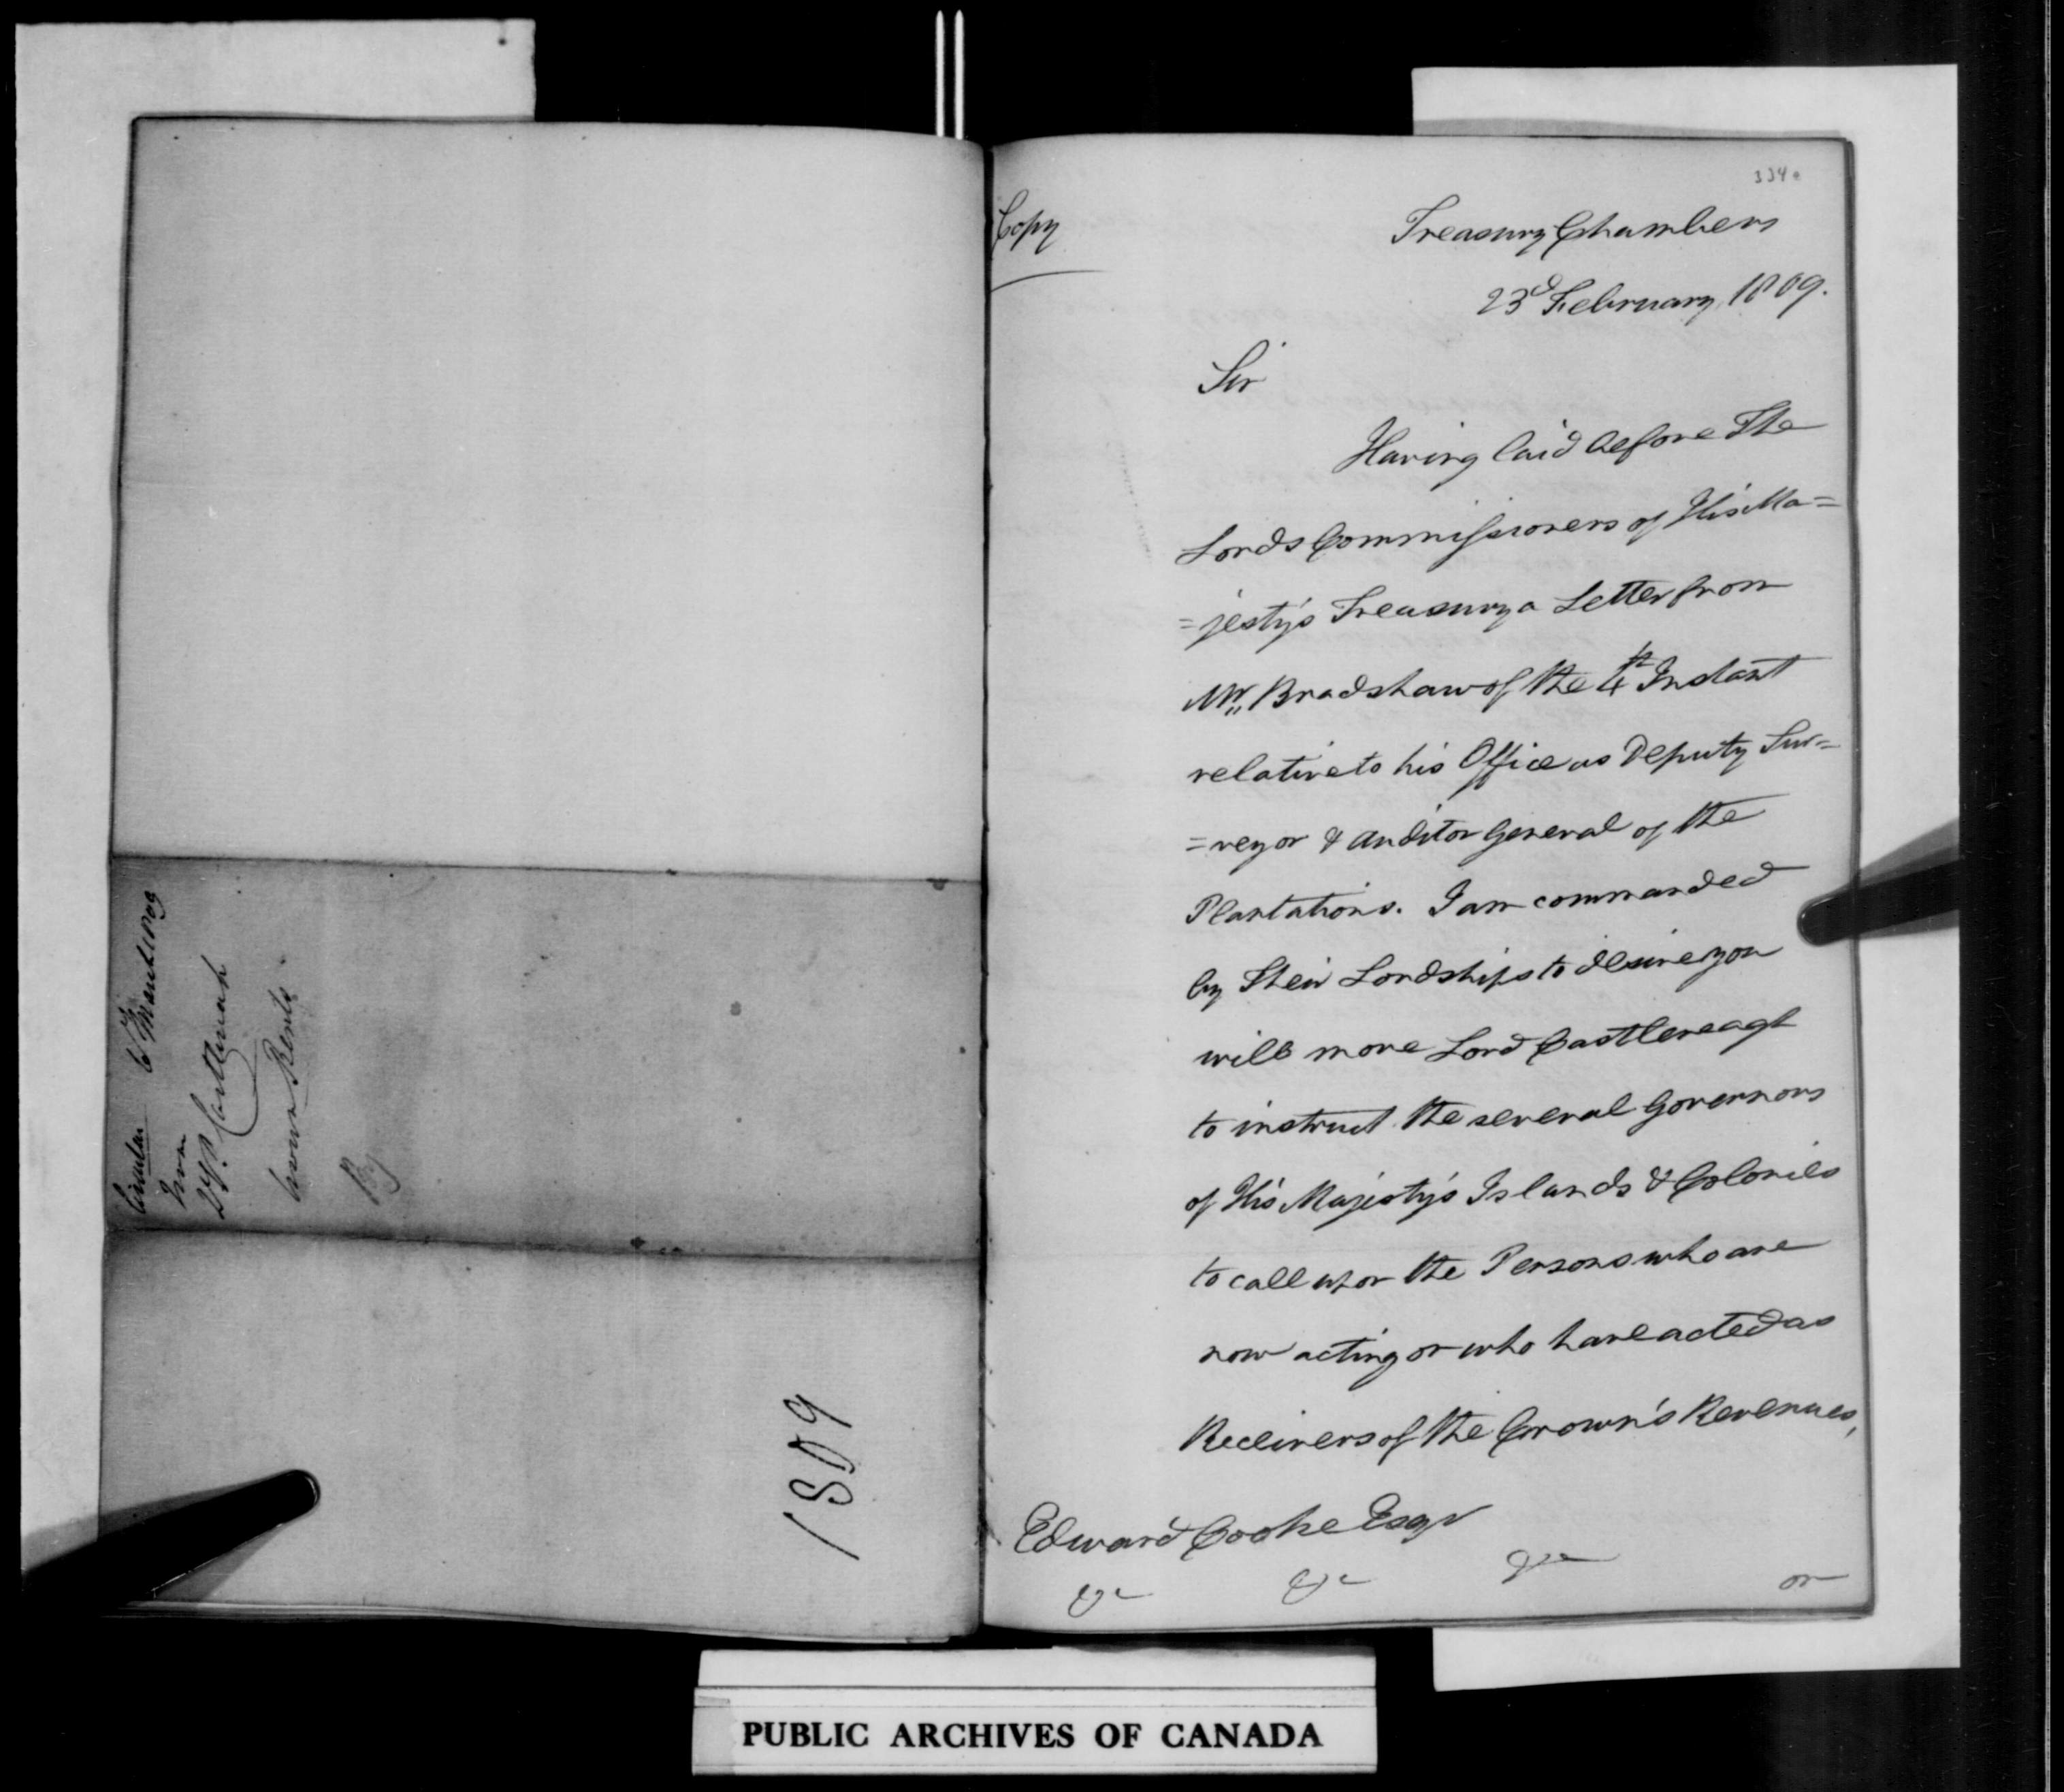 Circular 6th March 1809
from
Ld. Castlereagh
Crown Rents
1809
334
Copy
Treasury Chambers
23d February 1809.
Sir
Having laid before The
Lords Commissioners of His Ma=
=jesty's Treasury a Letter from
Mr. Bradshaw of the 4th Instant
relative to his Office as Deputy Sur=
=veyor & Auditor General of the
Plantations. I am commanded
by Their Lordships to desire you
will move Lord Castlereagh
to instruct the several Governors
of His Majesty's Islands & Colonies
to call upon the Persons who are
now acting or who have acted as
Receivers of the Crown's Revenues,
Edward Cooke Esqr
&c &c &c
or
PUBLIC ARCHIVES OF CANADA